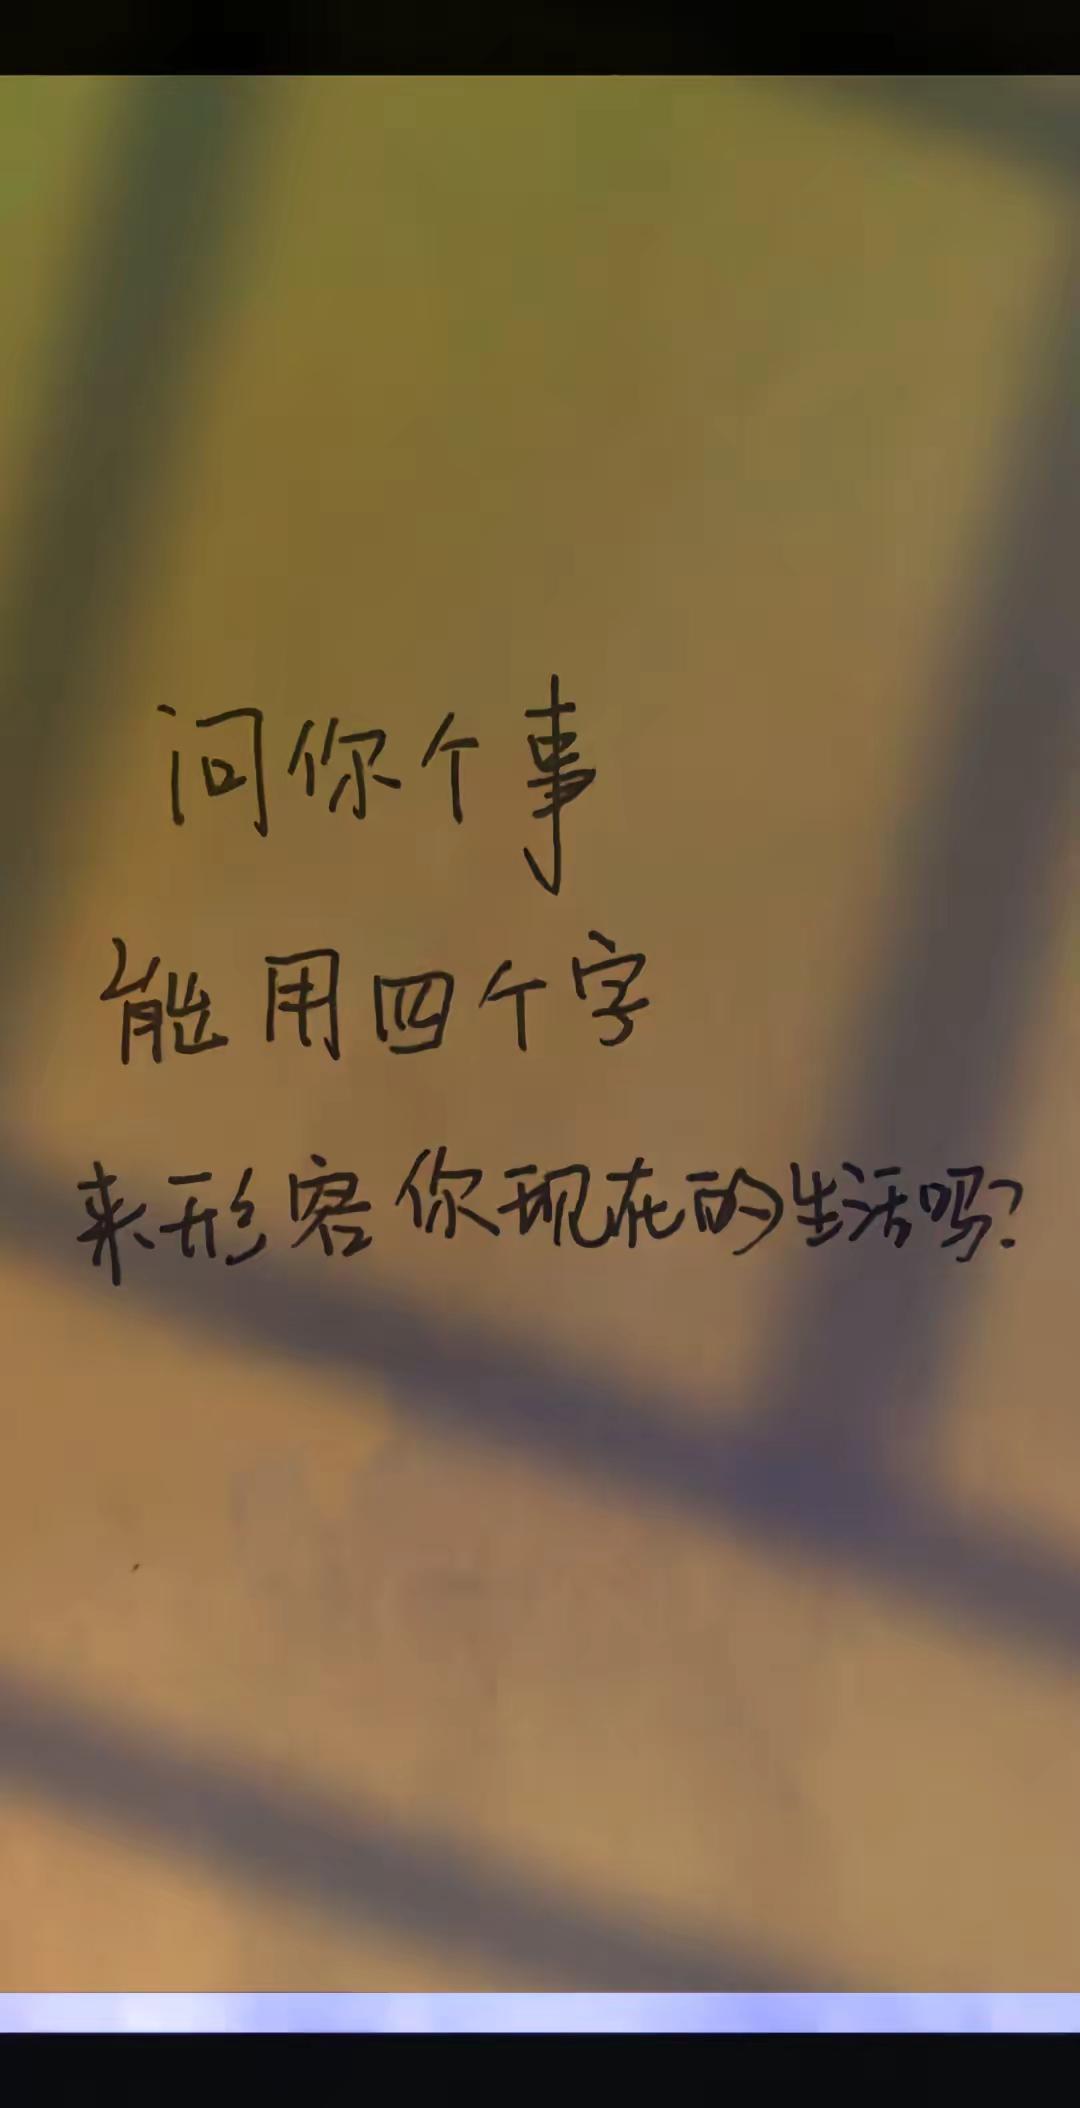 问你个事
能用四个字
来形容你现在的生活吗?